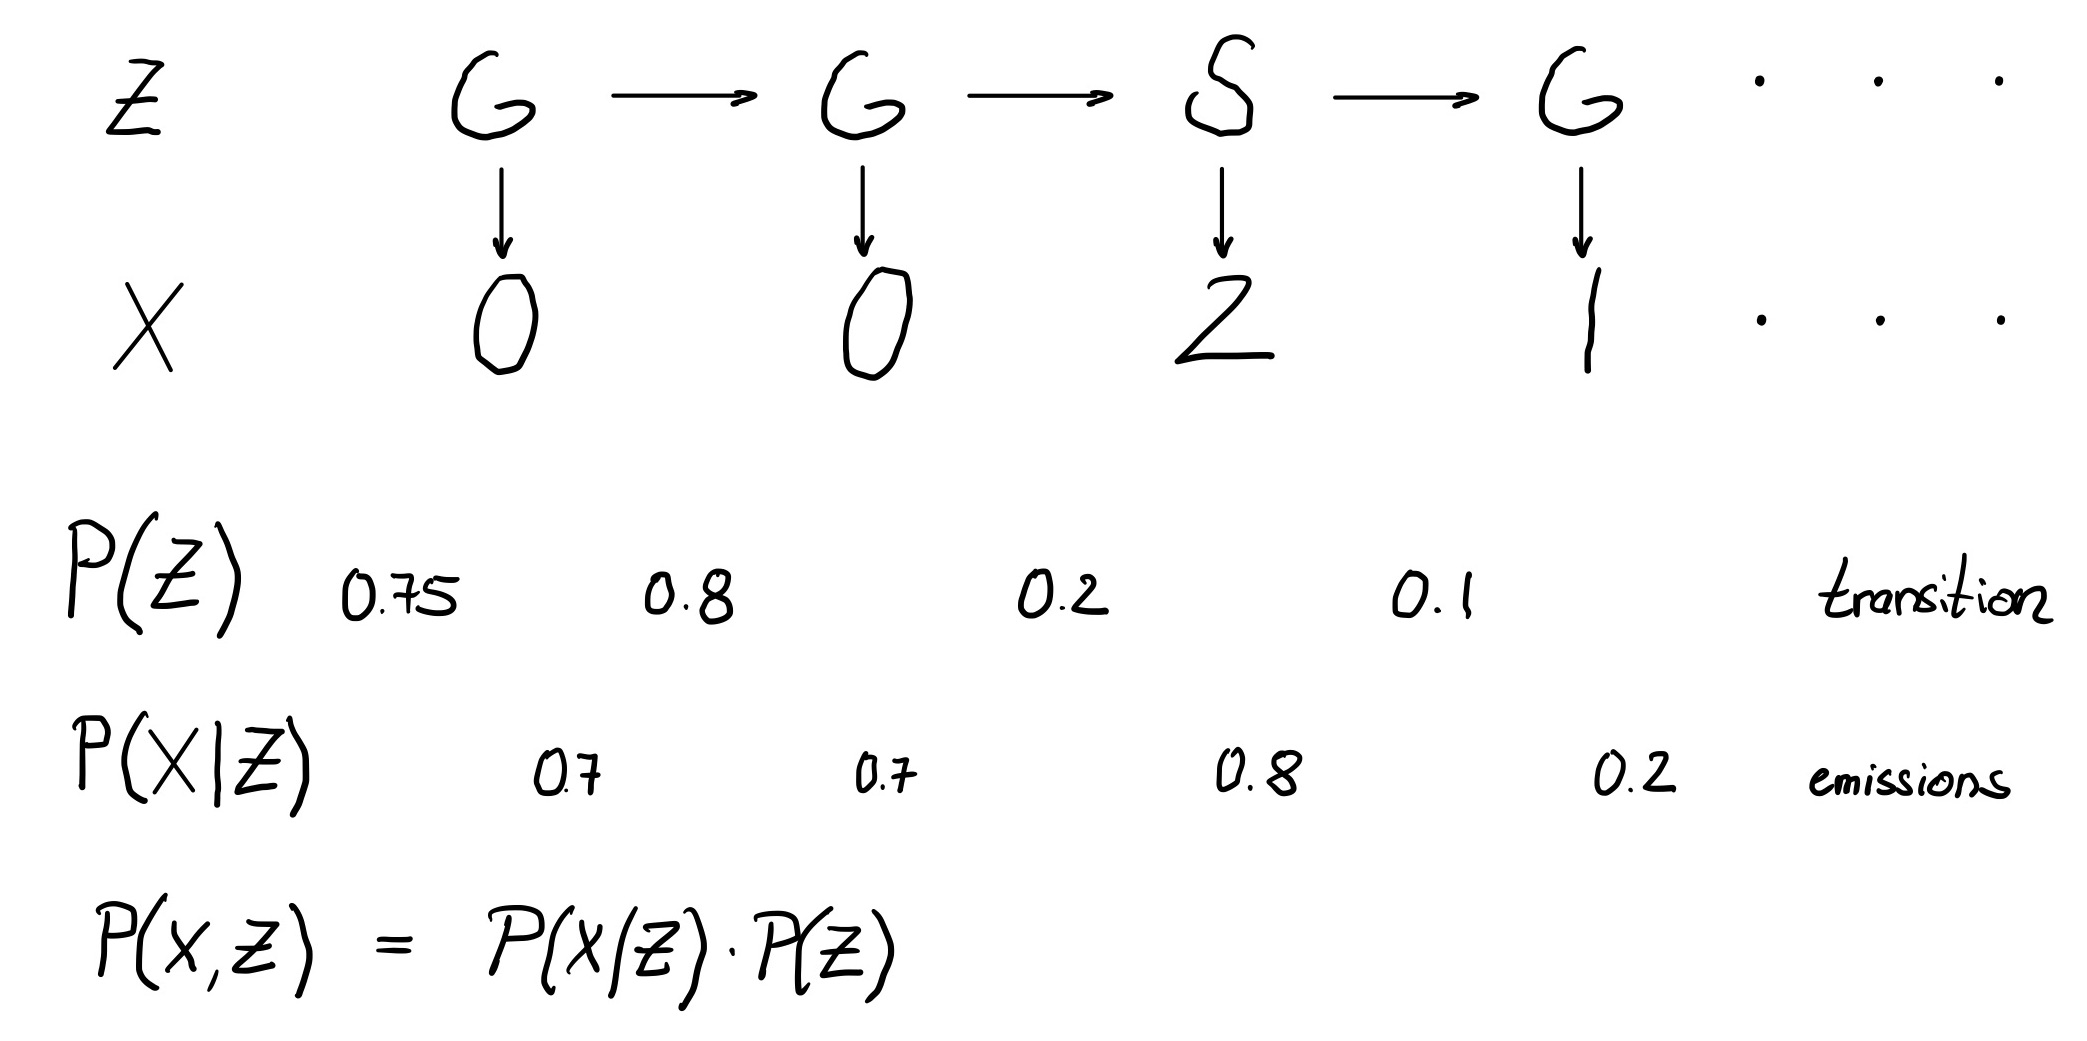 Z G → G → S → G . . .
↓ ↓ ↓ ↓
X 0 0 2 1 . . .
P(Z) 0.75 0.8 0.2 0.1 transition
P(X|Z) 0.7 0.7 0.8 0.2 emissions
P(X,Z) = P(X|Z) · P(Z)